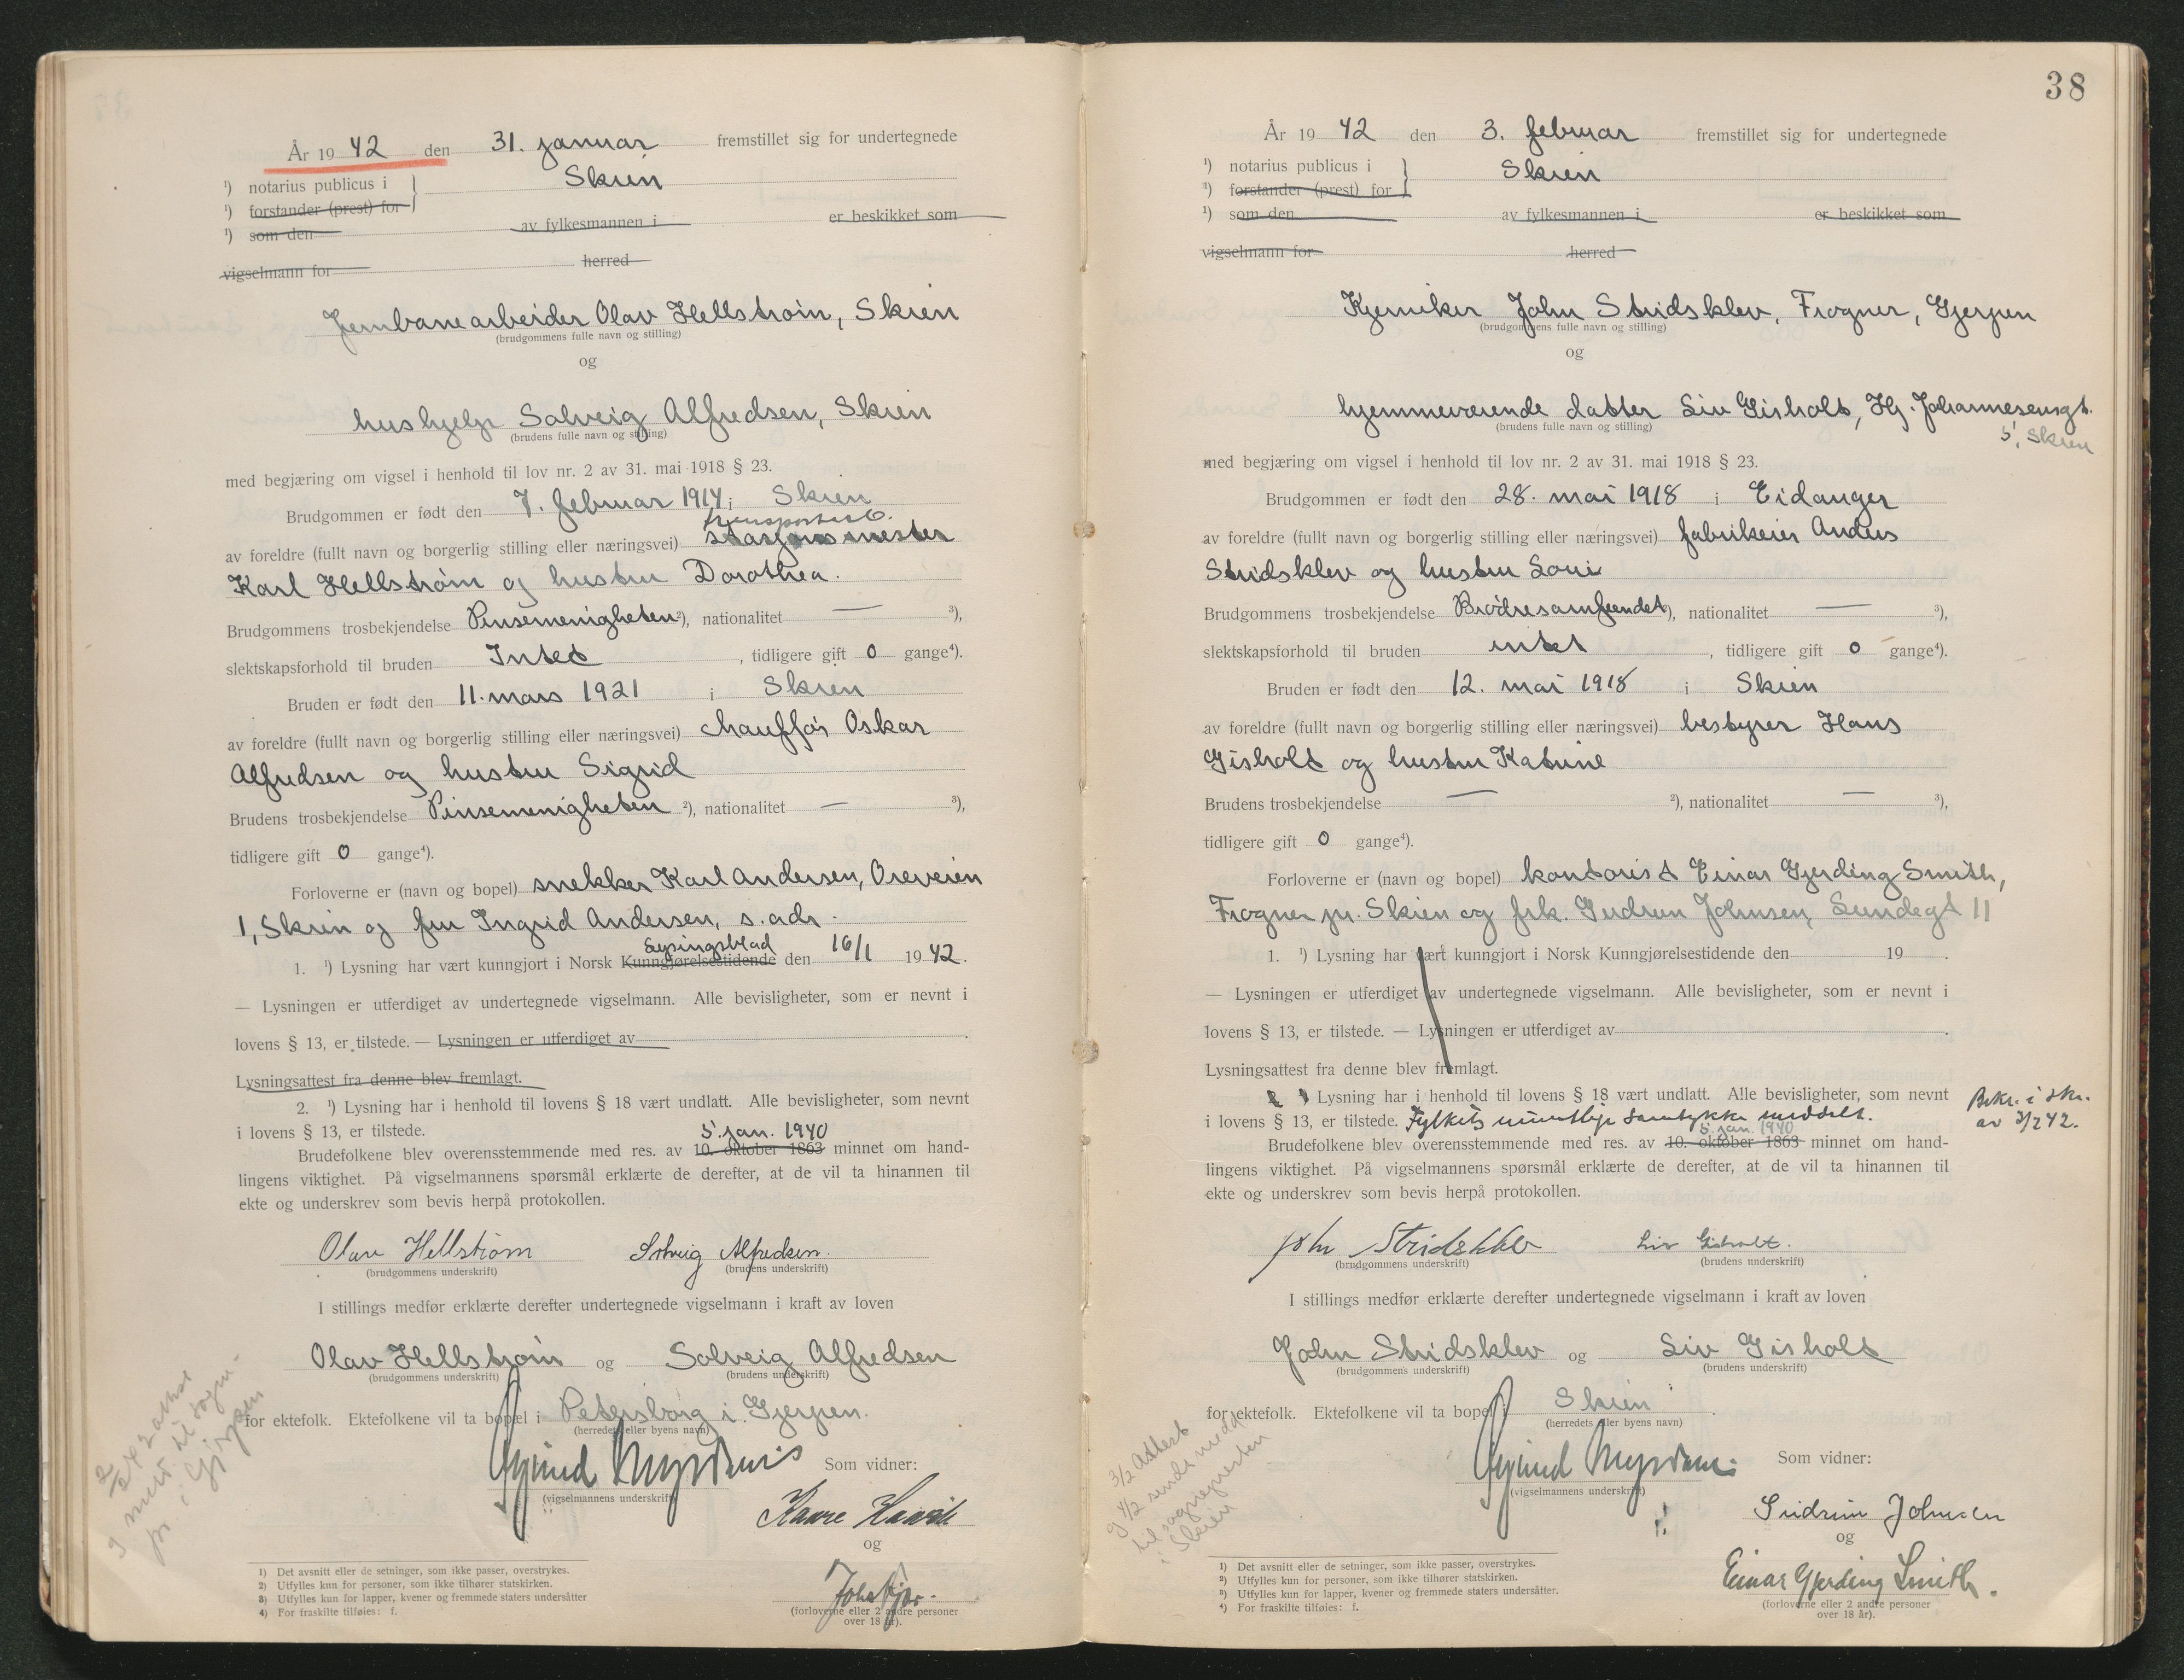 År 19 42 den 31. januar fremstillet sig for undertegnede
¹) notarius publicus i } Skien
¹) forstander (prest) for
¹) som den av fylkesmannen i er beskikket som
vigselmann for herred
Jernbanearbeider Olav Hellstrøm, Skien
(brudgommens fulle navn og stilling)
og
hushjelp Solveig Alfredsen, Skien
(brudens fulle navn og stilling)
med begjæring om vigsel i henhold til lov nr. 2 av 31. mai 1918 § 23.
Brudgommen er født den 7. februar 1914 i Skien
av foreldre (fullt navn og borgerlig stilling eller næringsvei) stasjonsmester
Karl Hellstrøm og hustru Dorothea.
Brudgommens trosbekjendelse Pinsemenigheten ²), nationalitet — ³),
slektskapsforhold til bruden Intet , tidligere gift 0 gange⁴).
Bruden er født den 11. mars 1921 i Skien
av foreldre (fullt navn og borgerlig stilling eller næringsvei) chauffør Oskar
Alfredsen og hustru Sigrid
Brudens trosbekjendelse Pinsemenigheten ²), nationalitet — ³),
tidligere gift 0 gange⁴).
Forloverne er (navn og bopel) snekker Karl Andersen, Oreveien
1, Skien og fru Ingrid Andersen, s. adr.
Lysingsblad
1. ¹) Lysning har vært kunngjort i Norsk Kunngjørelsestidende den 16/1 19 42.
— Lysningen er utferdiget av undertegnede vigselmann. Alle bevisligheter, som er nevnt i
lovens § 13, er tilstede. — Lysningen er utferdiget av
Lysningsattest fra denne blev fremlagt.
2. ¹) Lysning har i henhold til lovens § 18 vært undlatt. Alle bevisligheter, som nevnt
i lovens § 13, er tilstede.
5. jan. 1940
Brudefolkene blev overensstemmende med res. av 10. oktober 1863 minnet om hand-
lingens viktighet. På vigselmannens spørsmål erklærte de derefter, at de vil ta hinannen til
ekte og underskrev som bevis herpå protokollen.
Olav Hellstrøm Solveig Alfredsen.
(brudgommens underskrift) (brudens underskrift)
I stillings medfør erklærte derefter undertegnede vigselmann i kraft av loven
Olav Hellstrøm og Solveig Alfredsen
(brudgommens underskrift) (brudens underskrift)
for ektefolk. Ektefolkene vil ta bopel i Petersborg i Gjerpen.
(herredets eller byens navn)
Som vidner:
(vigselmannens underskrift)
Kaare
og
(forloverne eller 2 andre personer
over 18 år).
1) Det avsnitt eller de setninger, som ikke passer, overstrykes.
2) Utfylles kun for personer, som ikke tilhører statskirken.
3) Utfylles kun for lapper, kvener og fremmede staters undersåtter
4) For fraskilte tilføies: f.
38
År 19 42 den 3. februar fremstillet sig for undertegnede
¹) notarius publicus i } Skien
¹) forstander (prest) for
¹) som den av fylkesmannen i er beskikket som
vigselmann for herred
Kjemiker John Stridsklev, Frogner, Gjerpen
(brudgommens fulle navn og stilling)
og
hjemmeværende datter Liv Gisholt, Hj. Johannesensgt.
5, Skien
(brudens fulle navn og stilling)
med begjæring om vigsel i henhold til lov nr. 2 av 31. mai 1918 § 23.
Brudgommen er født den 28. mai 1918 i Eidanger
av foreldre (fullt navn og borgerlig stilling eller næringsvei) fabrikeier Anders
Stridsklev og hustru
Brudgommens trosbekjendelse Brødresamfundet ²), nationalitet — ³),
slektskapsforhold til bruden intet , tidligere gift 0 gange⁴).
Bruden er født den 12. mai 1918 i Skien
av foreldre (fullt navn og borgerlig stilling eller næringsvei) bestyrer Hans
Gisholt og hustru Katrine
Brudens trosbekjendelse — ²), nationalitet — ³),
tidligere gift 0 gange⁴).
Forloverne er (navn og bopel) kontorist Einar Gjerding Smith,
Frogner pr. Skien og frk. Gudrun Johnsen, Lundegt 11
1. ¹) Lysning har vært kunngjort i Norsk Kunngjørelsestidende den 19 .
— Lysningen er utferdiget av undertegnede vigselmann. Alle bevisligheter, som er nevnt i
lovens § 13, er tilstede. — Lysningen er utferdiget av .
Lysningsattest fra denne blev fremlagt.
Lysning har i henhold til lovens § 18 vært undlatt. Alle bevisligheter, som nevnt
i lovens § 13, er tilstede. Fylkets muntlige samtykke meddelt.
Bekr. i skr.
av 3/2 42.
5. jan. 1940
Brudefolkene blev overensstemmende med res. av 10. oktober 1863 minnet om hand-
lingens viktighet. På vigselmannens spørsmål erklærte de derefter, at de vil ta hinannen til
ekte og underskrev som bevis herpå protokollen.
John Stridsklev Liv Gisholt.
(brudgommens underskrift) (brudens underskrift)
I stillings medfør erklærte derefter undertegnede vigselmann i kraft av loven
John Stridsklev og Liv Gisholt
(brudgommens underskrift) (brudens underskrift)
for ektefolk. Ektefolkene vil ta bopel i Skien .
(herredets eller byens navn)
Som vidner:
(vigselmannens underskrift)
3/2 Attest
og 4/2 sendt medd
til sognepresten
i Skien
Gudrun Johnsen
og
Einar Gjerding Smith.
(forloverne eller 2 andre personer
over 18 år).
1) Det avsnitt eller de setninger, som ikke passer, overstrykes.
2) Utfylles kun for personer, som ikke tilhører statskirken.
3) Utfylles kun for lapper, kvener og fremmede staters undersåtter.
4) For fraskilte tilføies: f.